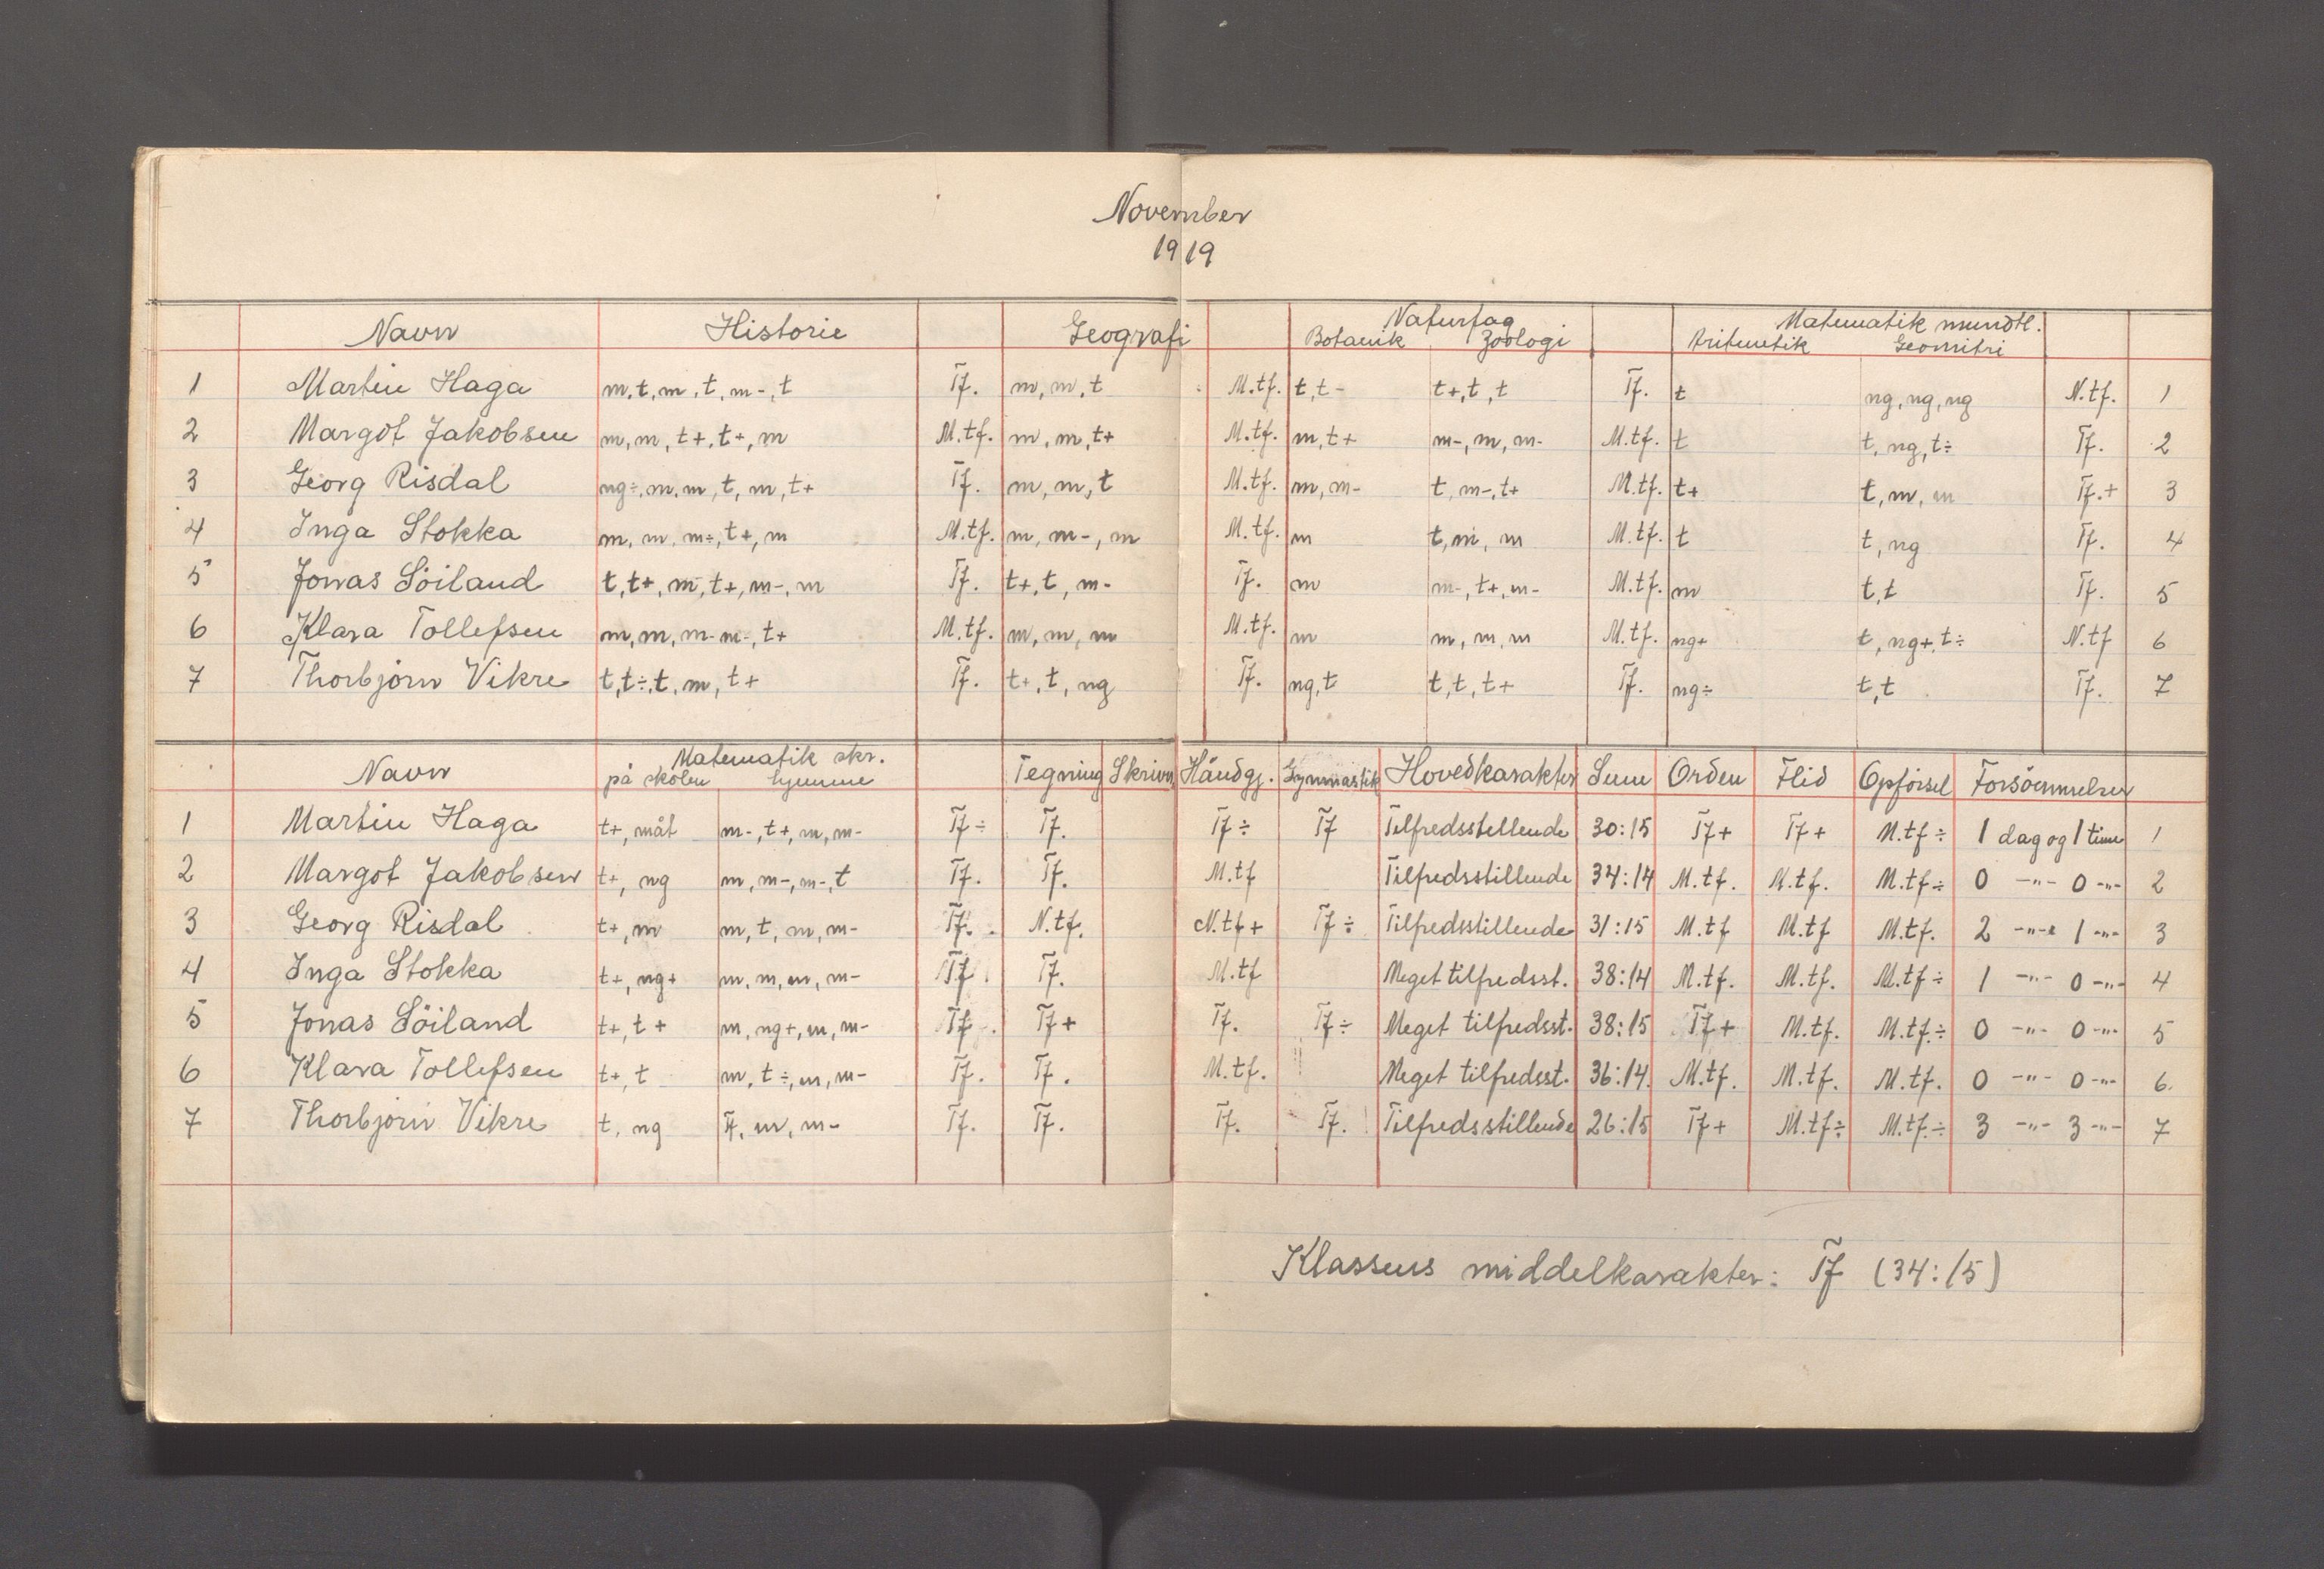 November
1919
Navn Historie Geografi Naturfag Matematik mundtl.
Botanik Zoologi Aritmetik Geometri
1 Martin Haga m, t, m, t, m-, t Tf. m, m, t M.tf. t, t- t+, t, t Tf. t ng, ng, ng N.tf. 1
2 Margot Jakobsen m, m, t+, t+, m M.tf. m, m, t+ M.tf. m, t+ m-, m, m- M.tf. t t, ng, t÷ Tf. 2
3 Georg Risdal ng÷, m, m, t, m, t+ Tf. m, m, t M.tf. m, m- t, m-, t+ M.tf. t+ t, m, m Tf.+ 3
4 Inga Stokka m, m, m÷, t+, m M.tf. m, m-, m M.tf. m t, m, m M.tf. t t, ng Tf. 4
5 Jonas Söiland t, t+, m, t+, m-, m Tf. t+, t, m- Tf. m m-, t+, m- M.tf. m t, t Tf. 5
6 Klara Tollefsen m, m, m- m-, t+ M.tf. m, m, m M.tf. m m, m, m M.tf. ng+ t, ng+, t÷ N.tf 6
7 Thorbjörn Vikre t, t÷, t, m, t+ Tf. t+, t, ng Tf. ng, t t, t, t+ Tf. ng÷ t, t Tf. 7
Navn Matematik skr. Tegning Skrivn. Håndgj. Gymnastik Hovedkarakter Sum Orden Flid Opförsel Forsömmelser
på skolen hjemme
1 Martin Haga t+, måt m-, t+, m, m- Tf÷ Tf. Tf÷ Tf Tilfredsstillende 30:15 Tf+ Tf+ M.tf÷ 1 dag og 1 time 1
2 Margot Jakobsen t+, ng m, m-, m-, t Tf. Tf. M.tf Tilfredsstillende 34:14 M.tf. M.tf. M.tf÷ 0 -"- 0 -"- 2
3 Georg Risdal t+, m m, t, m, m- Tf. N.tf. N.tf+ Tf÷ Tilfredsstillende 31:15 M.tf M.tf M.tf. 2 -"- 1 -"- 3
4 Inga Stokka t+, ng+ m, m, m, m- Tf. Tf. M.tf Meget tilfredsst. 38:14 M.tf. M.tf. M.tf÷ 1 -"- 0 -"- 4
5 Jonas Söiland t+, t+ m, ng+, m, m- Tf. Tf+ Tf. Tf÷ Meget tilfredsst. 38:15 Tf+ M.tf. M.tf.÷ 0 -"- 0 -"- 5
6 Klara Tollefsen t+, t m, t÷, m, m- Tf. Tf. M.tf. Meget tilfredsst. 36:14. M.tf. M.tf. M.tf. 0 -"- 0 -"- 6.
7 Thorbjörn Vikre t, ng m, m- Tf. Tf. Tf. Tf. Tilfredsstillende 26:15 Tf+ M.tf÷ M.tf.÷ 3 -"- 3 -"- 7
Klassens middelkarakter: Tf (34:15)